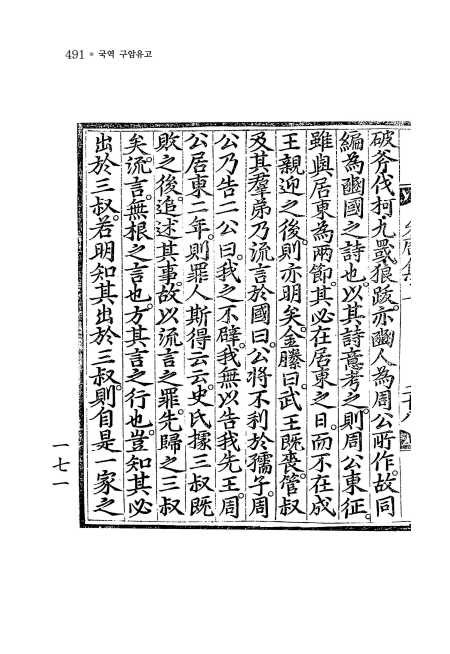 491 ● 국역 구암유고
破斧伐柯九罭狼跋亦豳人為周公所作故同
編為豳國之詩也。以其詩意考之則周公東征。
雖與居東為兩節。其必在居東之日。而不在成
王親迎之後。則亦明矣。金縢曰。武王旣喪。管叔
及其羣弟乃流言於國曰。公將不利於孺子。周
公乃告二公曰。我之不辟。我無以告我先王。周
公居東二年。則罪人斯得云云。史氏據三叔旣
敗之後。追述其事。故以流言之罪。先歸之三叔
矣。流言。無根之言也。方其言之行也。豈知其必
出於三叔。若明知其出於三叔。則自是一家之
一七一